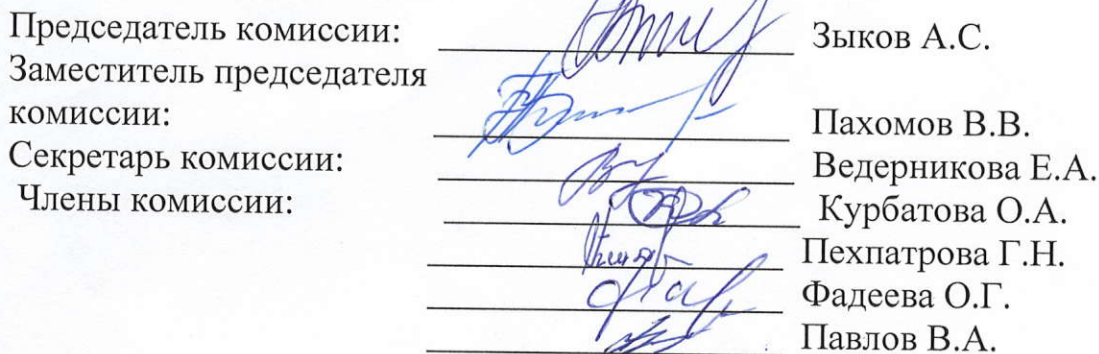 Председатель комиссии: Зыков А.С.
Заместитель председателя
комиссии: Пахомов В.В.
Секретарь комиссии: Ведерникова Е.А.
Члены комиссии: Курбатова О.А.
Пехпатрова Г.Н.
Фадеева О.Г.
Павлов В.А.